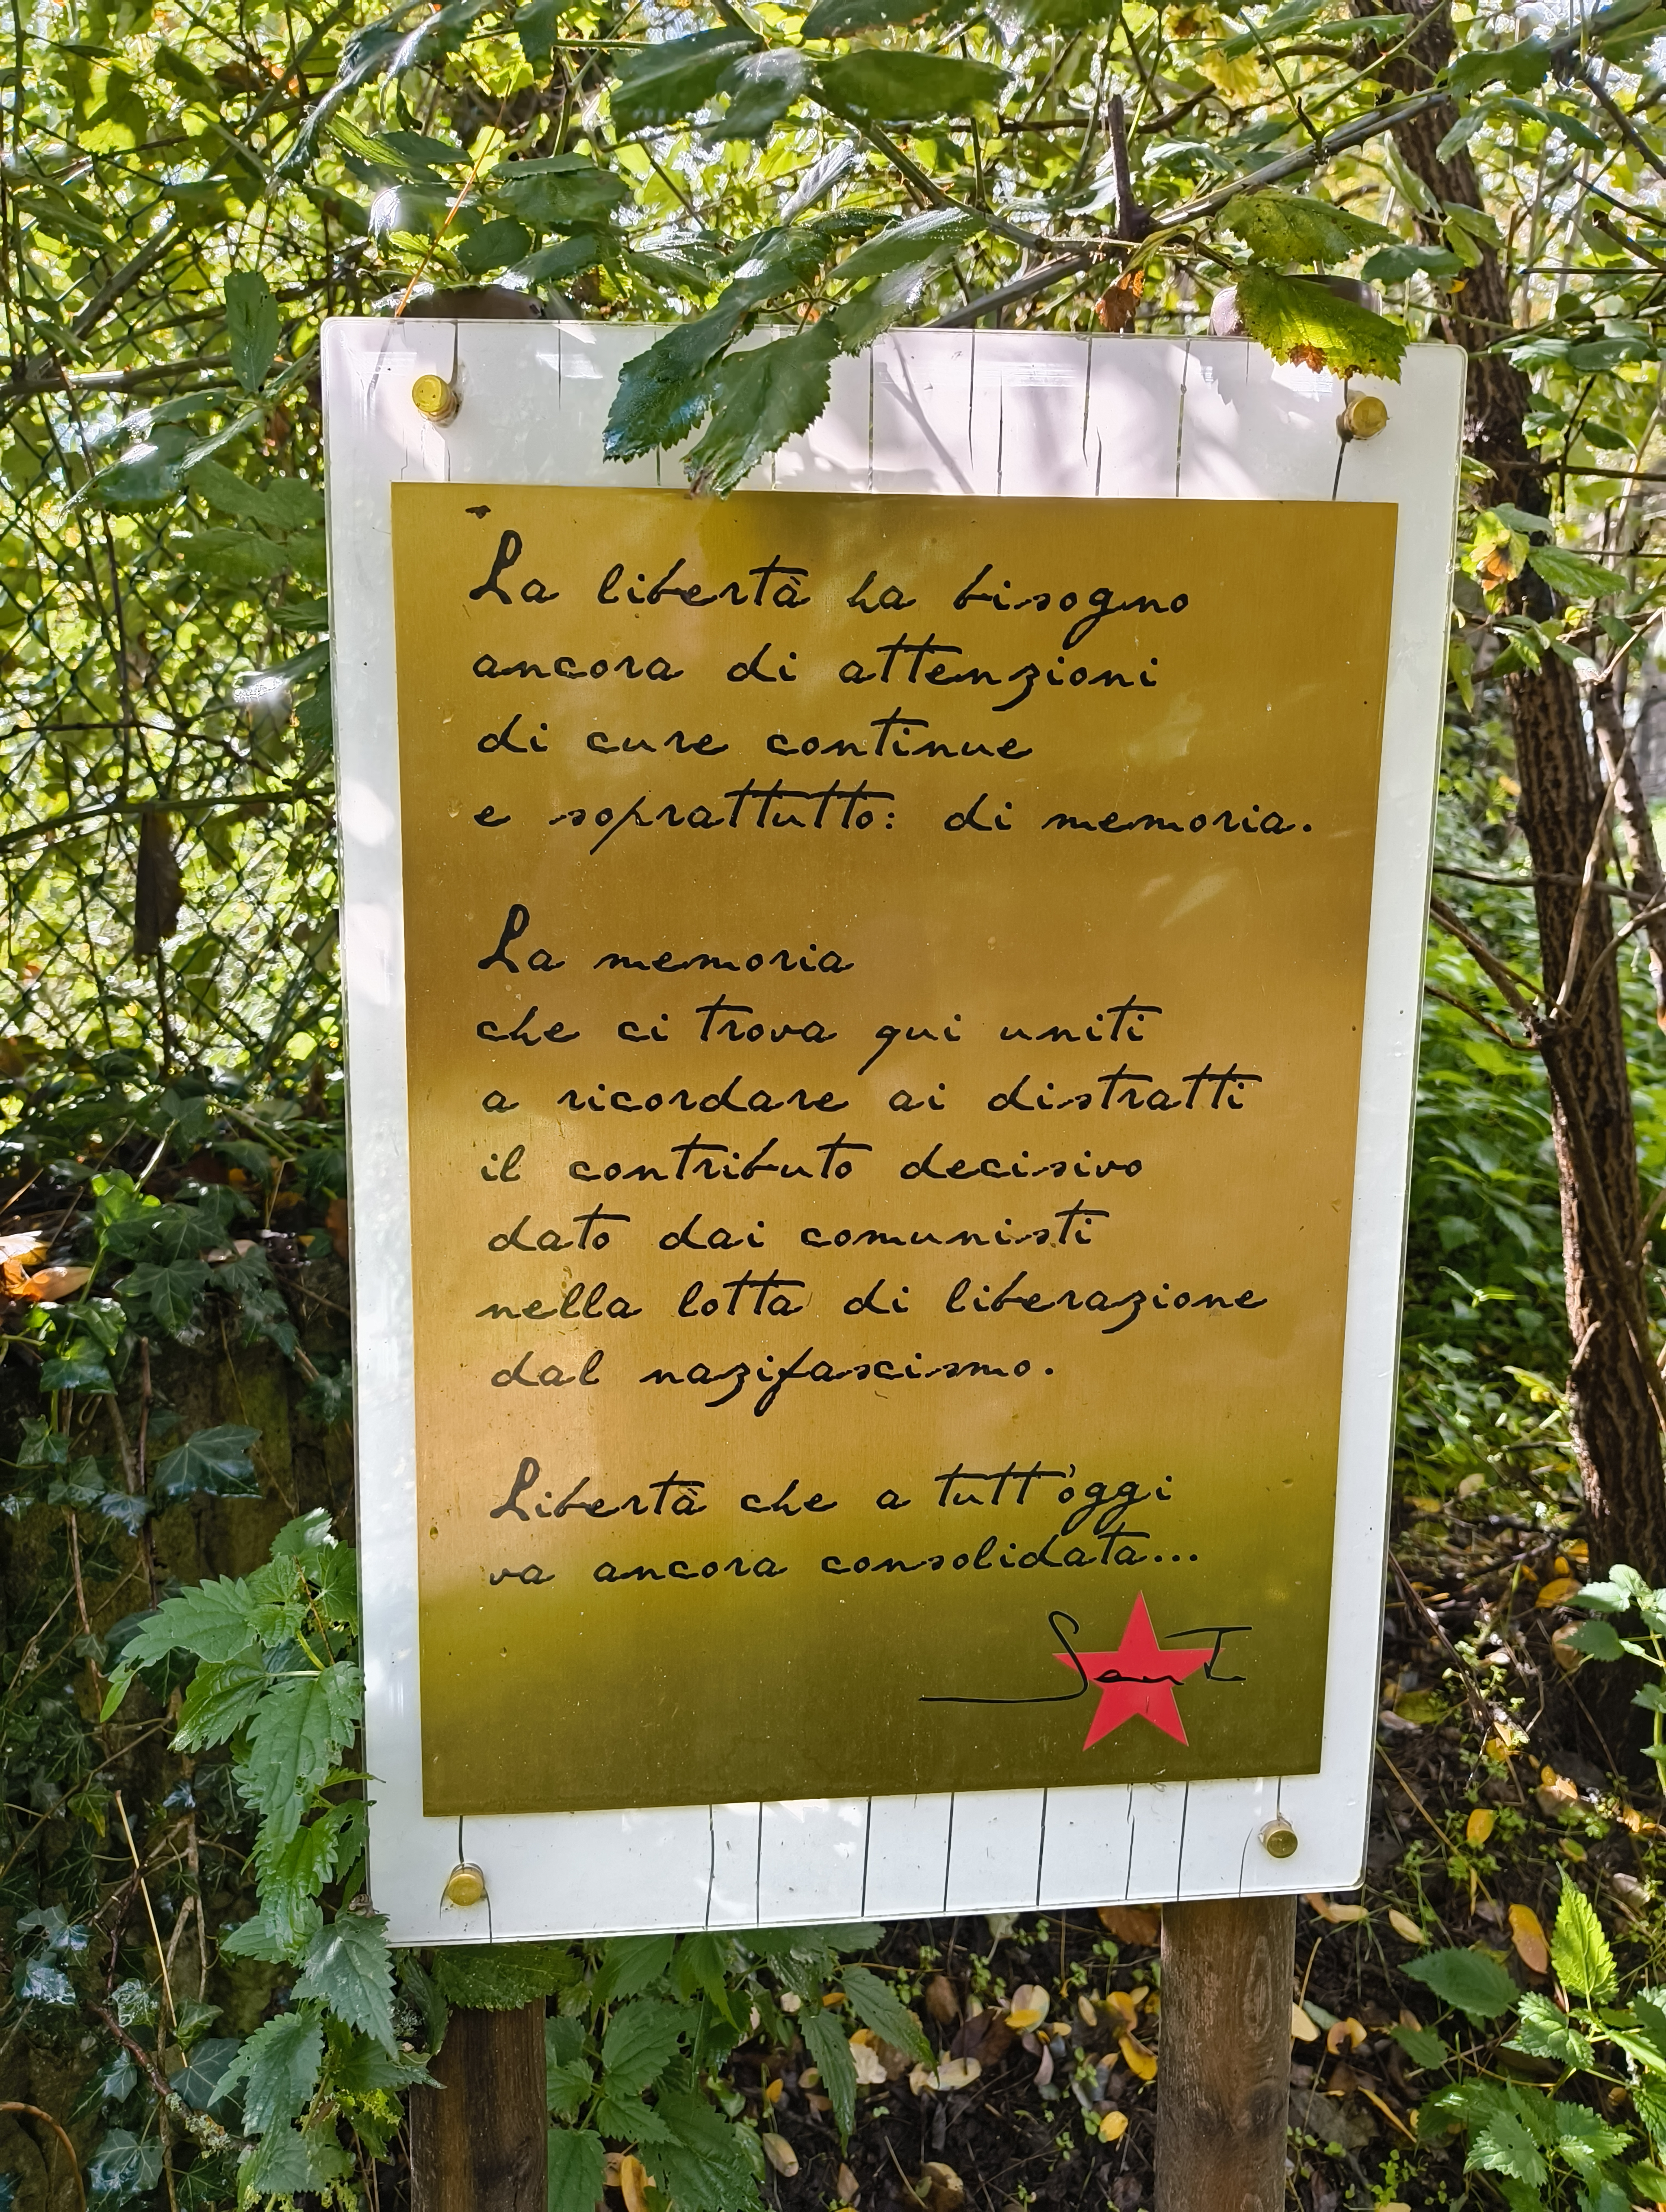 La libertà ha bisogno
ancora di attenzioni
di cure continue
e soprattutto: di memoria.
La memoria
che ci trova qui uniti
a ricordare ai distratti
il contributo decisivo
dato dai comunisti
nella lotta di liberazione
dal nazifascismo.
Libertà che a tutt'oggi
va ancora consolidata...